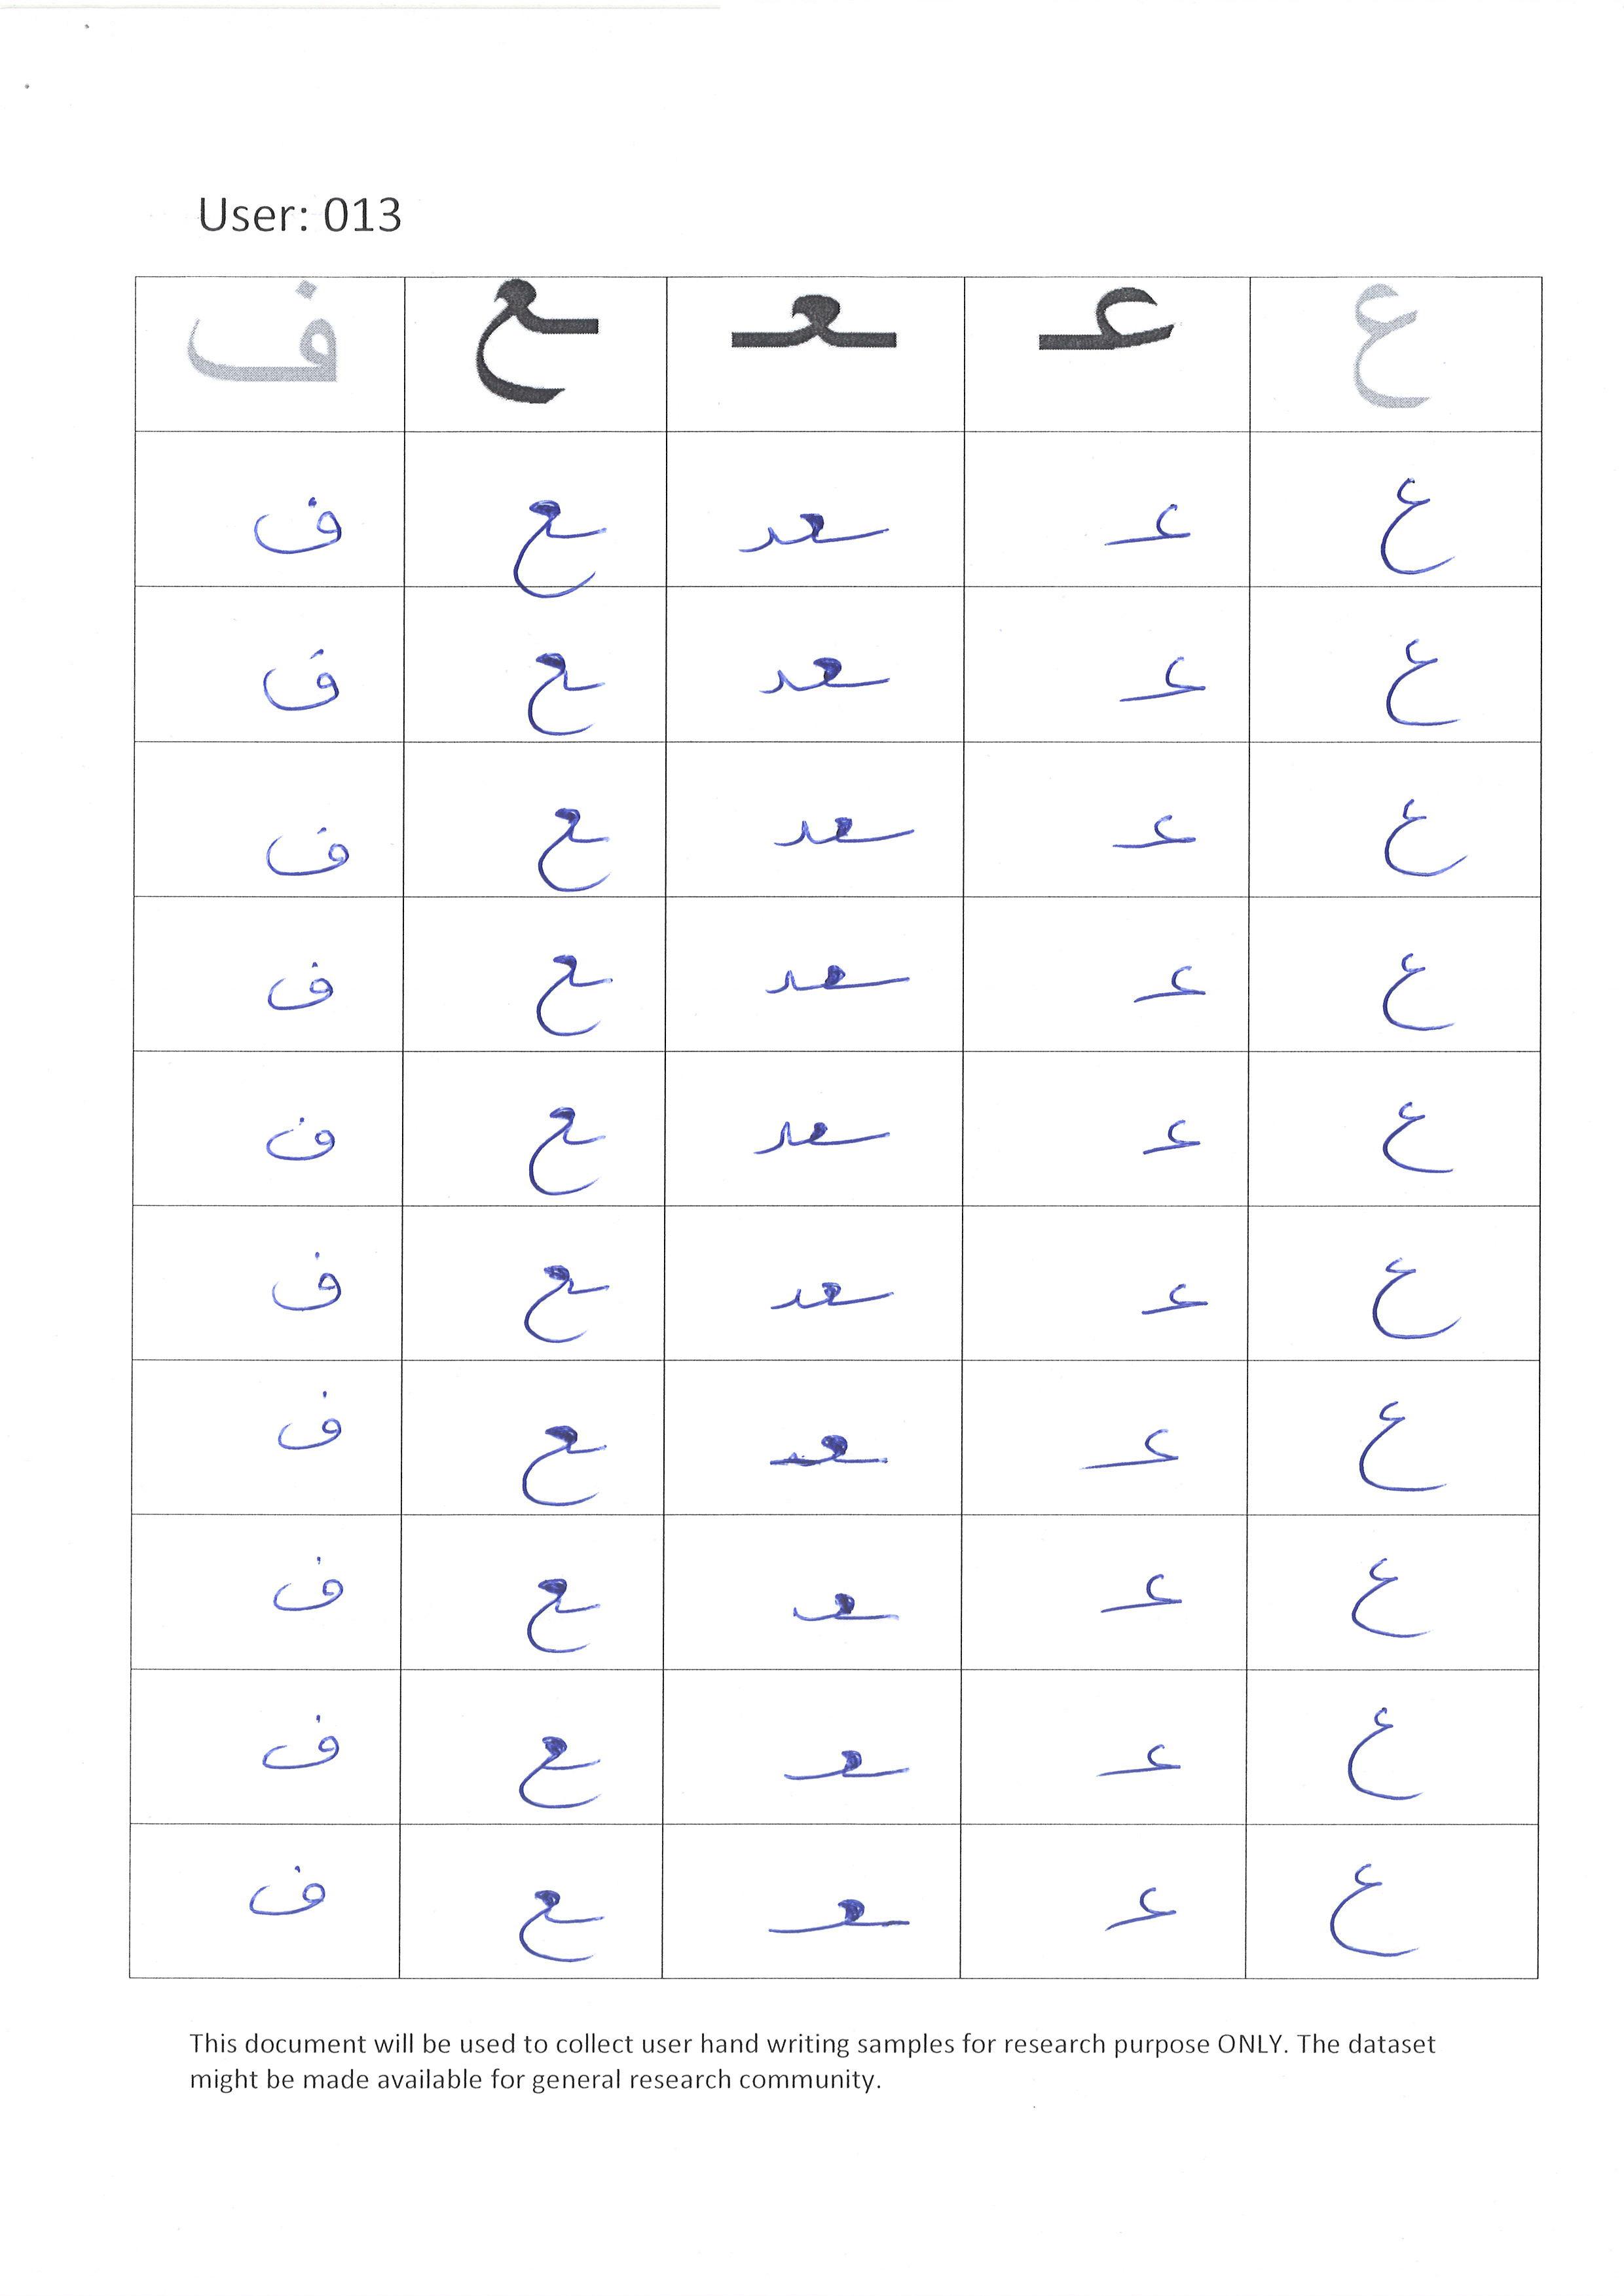 User: 013
ع عـ ـعـ ـع ف
ع عـ سعد ـع ف
ع عـ سعد ـع ف
ع عـ سعد ـع ف
ع عـ سعد ـع ف
ع عـ سعد ـع ف
ع عـ سعد ـع ف
ع عـ ـعـ ـع ف
ع عـ ـعـ ـع ف
ع عـ ـعـ ـع ف
ع عـ ـعـ ـع ف
This document will be used to collect user hand writing samples for research purpose ONLY. The dataset
might be made available for general research community.